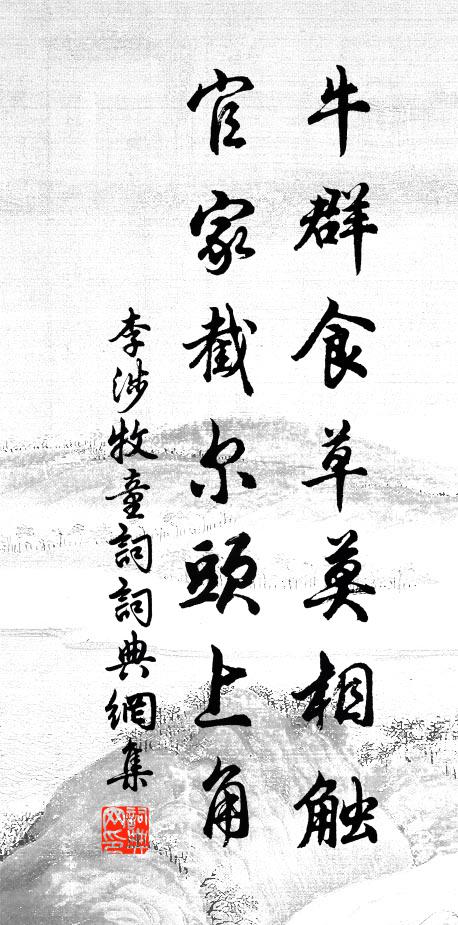 牛群食草莫相触
官家截尔頭上角
李涉牧童詞詞典網集